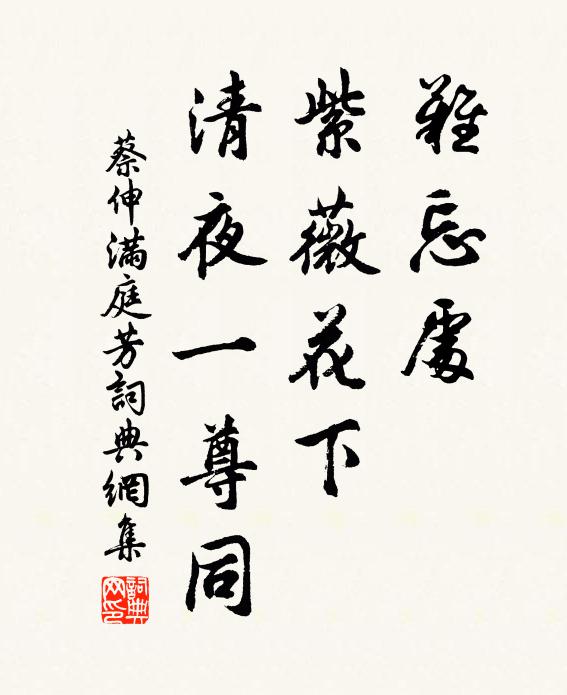 難忘處
紫薇花下
清夜一尊同
蔡伸滿庭芳詞典網集
詞典網印